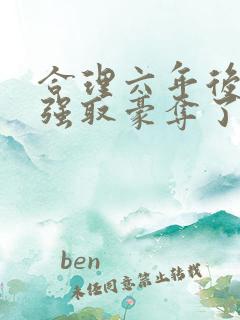 合理六年后
强取豪夺了
ben
未经同意禁止转载